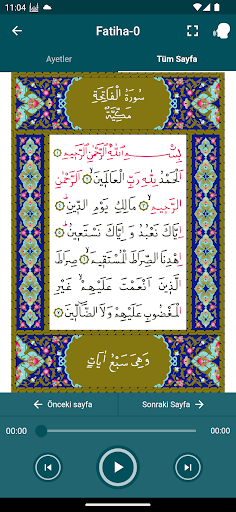 11:04
Fatiha-0
Ayetler
Tüm Sayfa
سُورَةُ الْفَاتِحَةِ
مَكِّيَّةٌ
بِسْمِ اللّٰهِ الرَّحْمٰنِ الرَّحِيمِ
اَلْحَمْدُ لِلّٰهِ رَبِّ الْعَالَمِينَ اَلرَّحْمٰنِ
الرَّحِيمِ مَالِكِ يَوْمِ الدِّينِ
اِيَّاكَ نَعْبُدُ وَاِيَّاكَ نَسْتَعِينُ
اِهْدِنَا الصِّرَاطَ الْمُسْتَقِيمَ صِرَاطَ
الَّذِينَ اَنْعَمْتَ عَلَيْهِمْ غَيْرِ
الْمَغْضُوبِ عَلَيْهِمْ وَلَا الضَّالِّينَ
وَهِيَ سَبْعُ اٰيَاتٍ
Önceki sayfa
Sonraki Sayfa
00:00
00:00